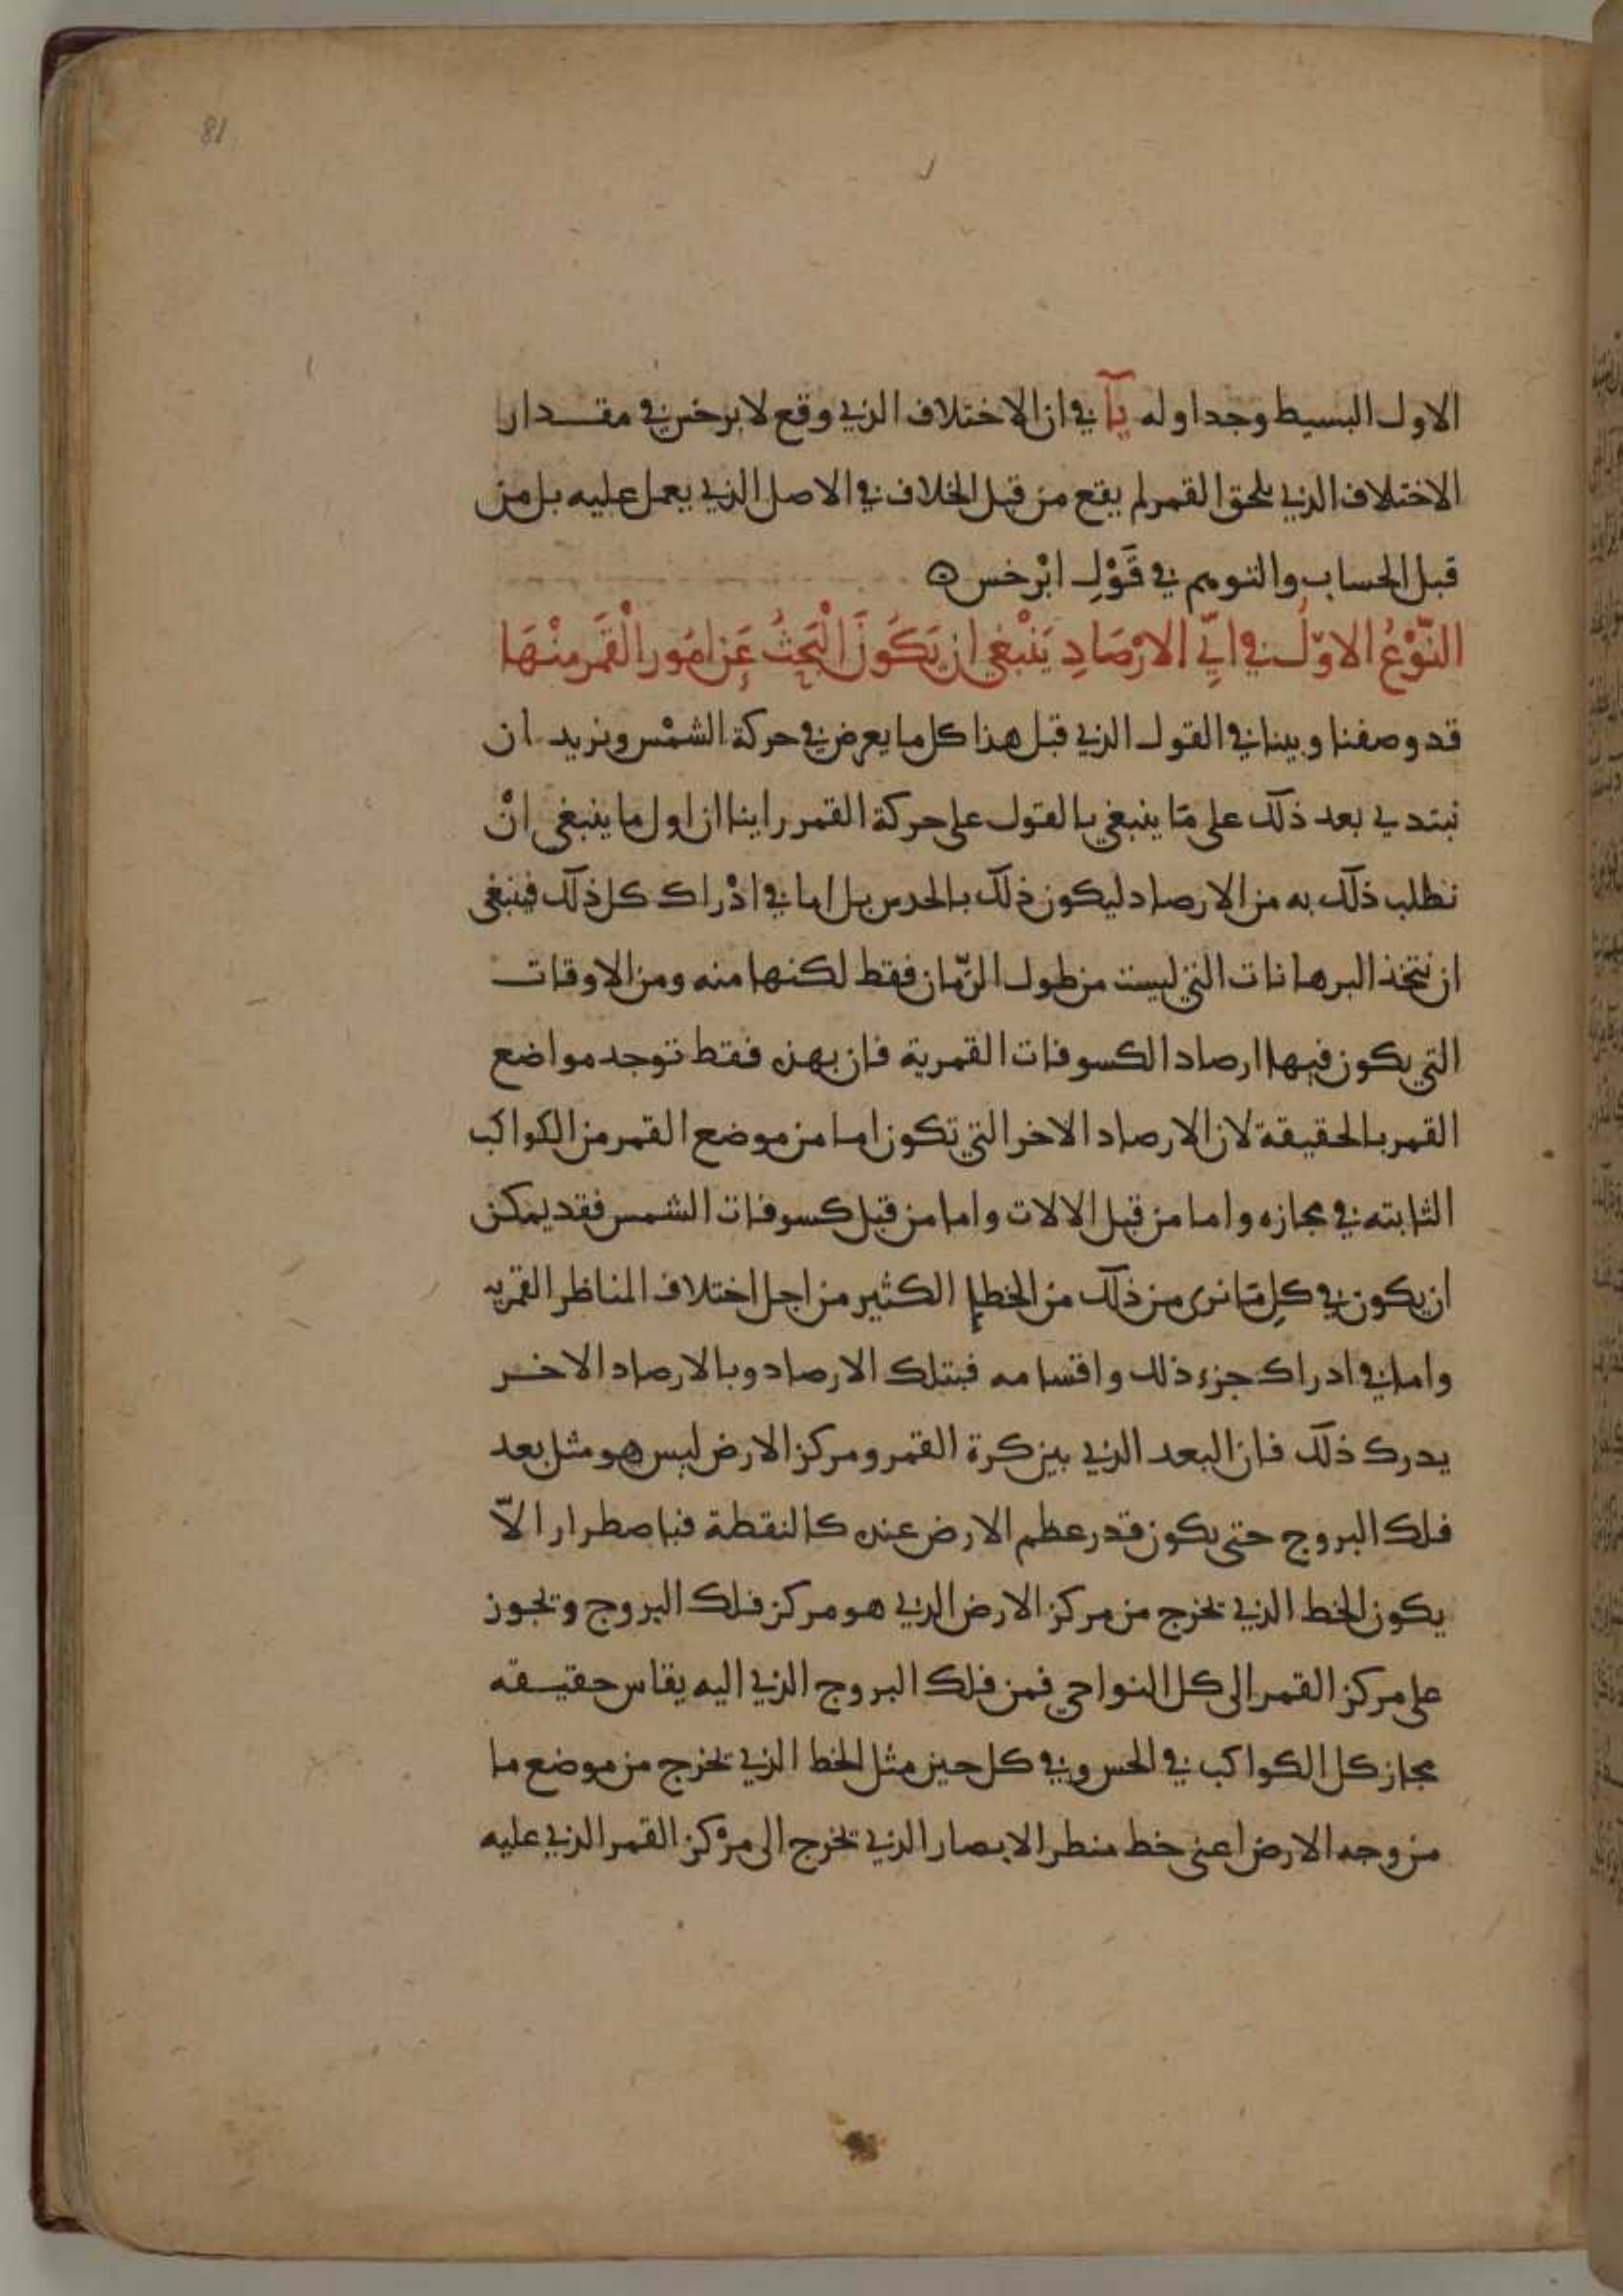 81
الاول البسيط وجداوله يا في ان الاختلاف الذي وقع لابرخس في مقدار
الاختلاف الذي يلحق القمر لم يقع من قبل الخلاف في الاصل الذي يعمل عليه بل من
قبل الحساب والتويم في قَوْلِ ابْرخس ه
النّوْعُ الاوّلُ في ايِّ الارْصَادِ يَنْبغي ان يَكُونَ الْبَحثُ عَن امُور الْقَمر منْهَا
قد وصفنا وبينا في القول الذي قبل هذا كل ما يعرض في حركة الشمْس ونريد ان
نبتدي بعد ذلك على مّا ينبغي بالقول على حركة القمر راينا ان اول ما ينبغي انْ
نطلب ذلك به من الارصاد ليكون ذلك بالحدس بل اما في ادْراك كل ذلك فينبغي
ان نتخذ البرهانات التي ليست من طول الزّمان فقط لكنها منه ومن الاوقات
التي يكون فيها ارصاد الكسوفات القمرية فان بهذه فقط توجد مواضع
القمر بالحقيقة لان الارصاد الاخر التي تكون اما من موضع القمر من الكواكب
الثابته في مجازه واما من قبل الالات واما من قبل كسوفات الشمس فقد يمكن
ان يكون في كلِ مّا نرى من ذلك من الخطإ الكثير من اجل اختلاف المناظر القمريه
واما في ادراك جزء ذلك واقسامه فبتلك الارصاد وبالارصاد الاخر
يدرك ذلك فان البعد الذي بين كرة القمر ومركز الارض ليس هو مثل بعد
فلك البروج حتى يكون قدر عظم الارض عنده كالنقطة فباصطرار الاّ
يكون الخط الذي يخرج من مركز الارض الذي هو مركز فلك البروج ويجوز
على مركز القمر الى كل النواحي فمن فلك البروج الذي اليه يقاس حقيقه
مجاز كل الكواكب في الحس وفي كل حين مثل الخط الذي يخرج من موضع ما
من وجه الارض اعني خط منطر الابصار الذي يخرج الى مرْكز القمر الذي عليه